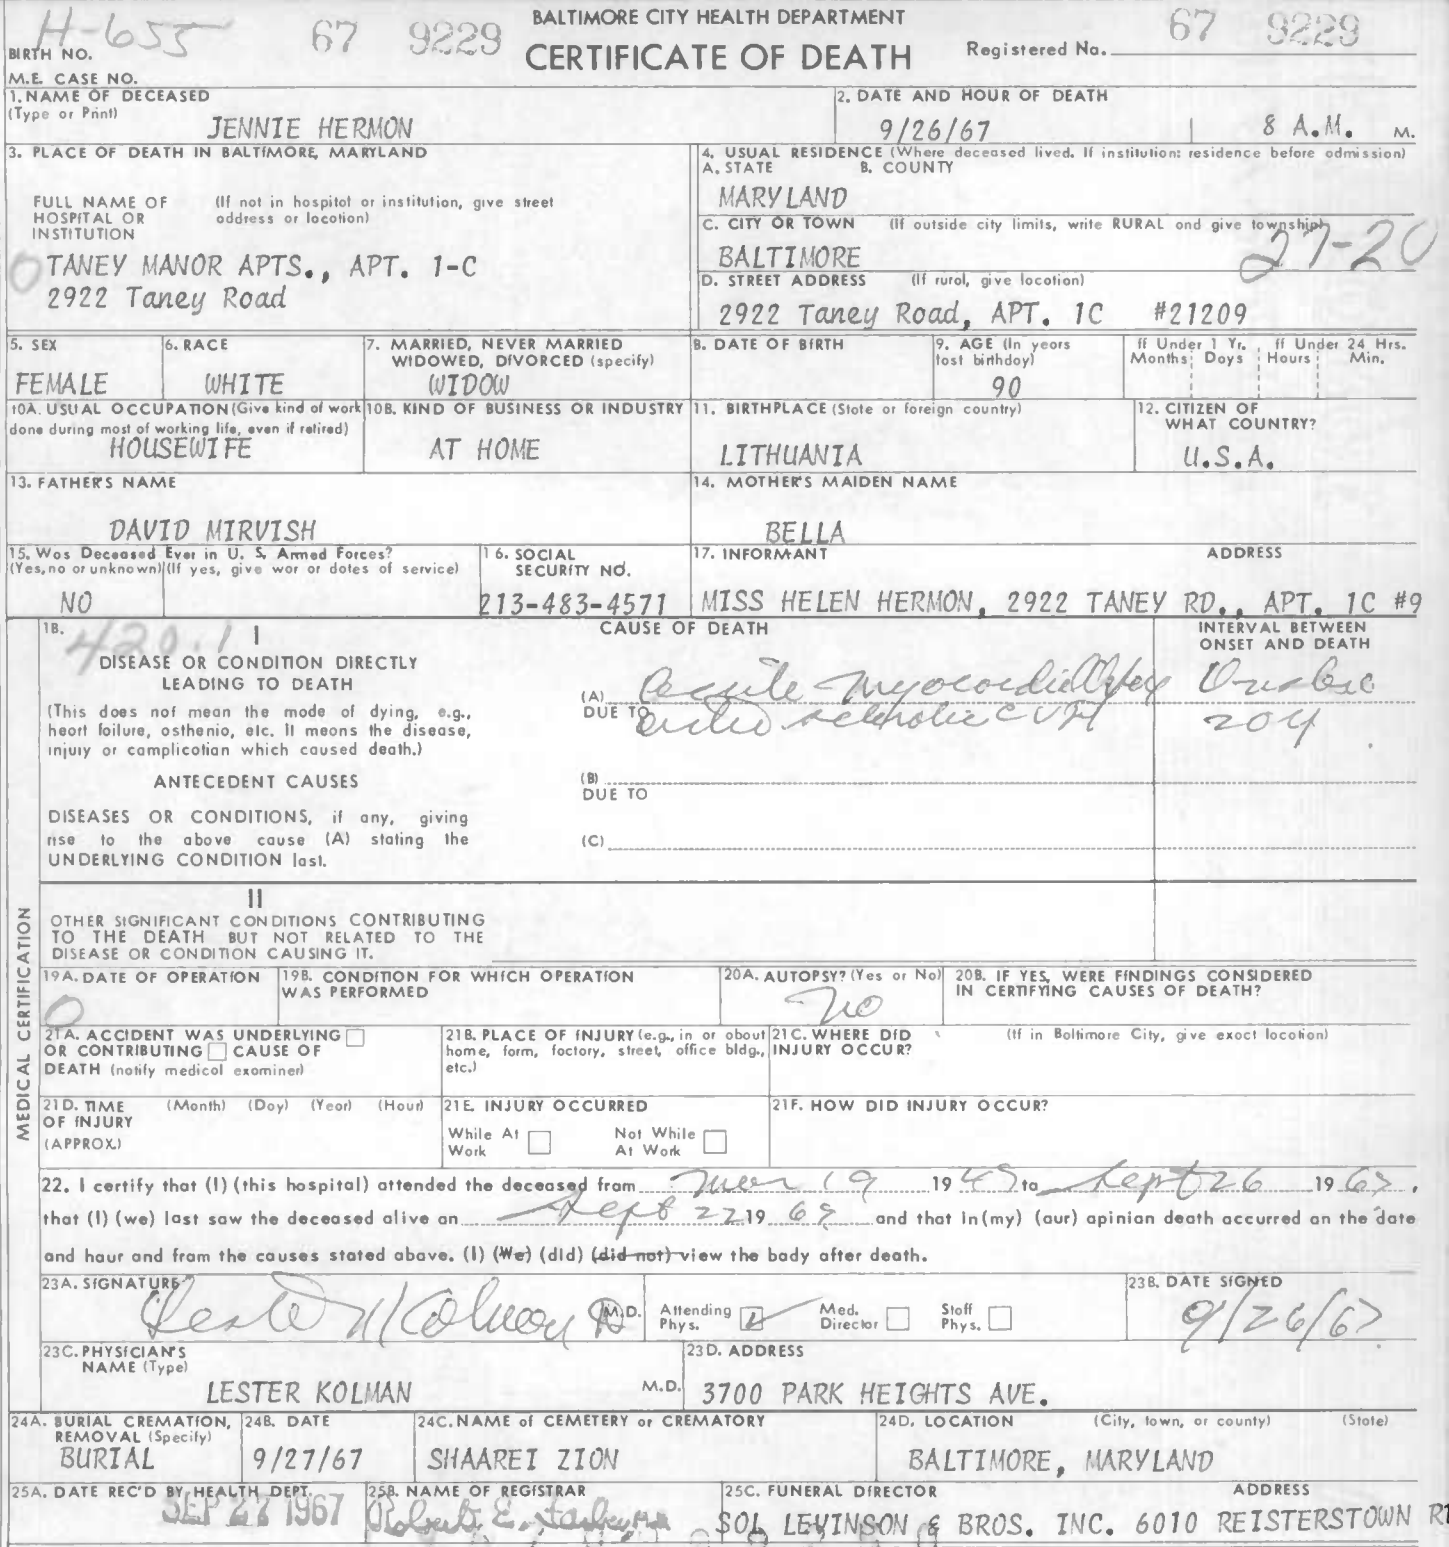 H-655 67 9229 BALTIMORE CITY HEALTH DEPARTMENT 67 9229
BIRTH NO. CERTIFICATE OF DEATH Registered No.
M.E. CASE NO.
1. NAME OF DECEASED
(Type or Print) JENNIE HERMON
2. DATE AND HOUR OF DEATH
9/26/67 8 A.M. M.
3. PLACE OF DEATH IN BALTIMORE, MARYLAND
FULL NAME OF HOSPITAL OR INSTITUTION (If not in hospital or institution, give street address or location)
O TANEY MANOR APTS., APT. 1-C
2922 Taney Road
4. USUAL RESIDENCE (Where deceased lived. If institution: residence before admission)
A. STATE B. COUNTY
MARYLAND
C. CITY OR TOWN (If outside city limits, write RURAL and give township)
BALTIMORE 27-20
D. STREET ADDRESS (If rural, give location)
2922 Taney Road, APT. 1C #21209
5. SEX
FEMALE
6. RACE
WHITE
7. MARRIED, NEVER MARRIED
WIDOWED, DIVORCED (specify)
WIDOW
8. DATE OF BIRTH
9. AGE (In years
last birthday)
90
If Under 1 Yr. If Under 24 Hrs.
Months Days Hours Min.
10A. USUAL OCCUPATION (Give kind of work
done during most of working life, even if retired)
HOUSEWIFE
10B. KIND OF BUSINESS OR INDUSTRY
AT HOME
11. BIRTHPLACE (State or foreign country)
LITHUANIA
12. CITIZEN OF
WHAT COUNTRY?
U.S.A.
13. FATHER'S NAME
DAVID MIRVISH
14. MOTHER'S MAIDEN NAME
BELLA
15. Was Deceased Ever in U. S. Armed Forces?
(Yes, no or unknown) (If yes, give war or dates of service)
NO
16. SOCIAL
SECURITY NO.
213-483-4571
17. INFORMANT ADDRESS
MISS HELEN HERMON, 2922 TANEY RD., APT. 1C #9
18. 420.1 I
DISEASE OR CONDITION DIRECTLY
LEADING TO DEATH
(This does not mean the mode of dying, e.g.,
heart failure, asthenia, etc. It means the disease,
injury or complication which caused death.)
ANTECEDENT CAUSES
DISEASES OR CONDITIONS, if any, giving
rise to the above cause (A) stating the
UNDERLYING CONDITION last.
CAUSE OF DEATH
(A) Acute Myocardial
DUE TO Arteriosclerotic CVD
(B)
DUE TO
(C)
INTERVAL BETWEEN
ONSET AND DEATH
20 y
II
OTHER SIGNIFICANT CONDITIONS CONTRIBUTING
TO THE DEATH BUT NOT RELATED TO THE
DISEASE OR CONDITION CAUSING IT.
MEDICAL CERTIFICATION
19A. DATE OF OPERATION
0
19B. CONDITION FOR WHICH OPERATION
WAS PERFORMED
20A. AUTOPSY? (Yes or No)
no
20B. IF YES, WERE FINDINGS CONSIDERED
IN CERTIFYING CAUSES OF DEATH?
21A. ACCIDENT WAS UNDERLYING
OR CONTRIBUTING CAUSE OF
DEATH (notify medical examiner)
21B. PLACE OF INJURY (e.g., in or about
home, farm, factory, street, office bldg.,
etc.)
21C. WHERE DID (If in Baltimore City, give exact location)
INJURY OCCUR?
21D. TIME (Month) (Day) (Year) (Hour)
OF INJURY
(APPROX.)
21E. INJURY OCCURRED
While At Work Not While At Work
21F. HOW DID INJURY OCCUR?
22. I certify that (I) (this hospital) attended the deceased from Mar 19 1947 to Sept 26 1967,
that (I) (we) last saw the deceased alive on Sept 22 1967 and that in (my) (our) opinion death occurred on the date
and hour and from the causes stated above. (I) (We) (did) (did not) view the body after death.
23A. SIGNATURE
Lester Kolman M.D.
Attending Phys. Med. Director Staff Phys.
23B. DATE SIGNED
9/26/67
23C. PHYSICIAN'S
NAME (Type)
LESTER KOLMAN M.D.
23D. ADDRESS
3700 PARK HEIGHTS AVE.
24A. BURIAL CREMATION,
REMOVAL (Specify)
BURIAL
24B. DATE
9/27/67
24C. NAME of CEMETERY or CREMATORY
SHAAREI ZION
24D. LOCATION (City, town, or county) (State)
BALTIMORE, MARYLAND
25A. DATE REC'D BY HEALTH DEPT.
SEP 27 1967
25B. NAME OF REGISTRAR
Robert E. Farber, M.D.
25C. FUNERAL DIRECTOR ADDRESS
SOL LEVINSON & BROS. INC. 6010 REISTERSTOWN RD